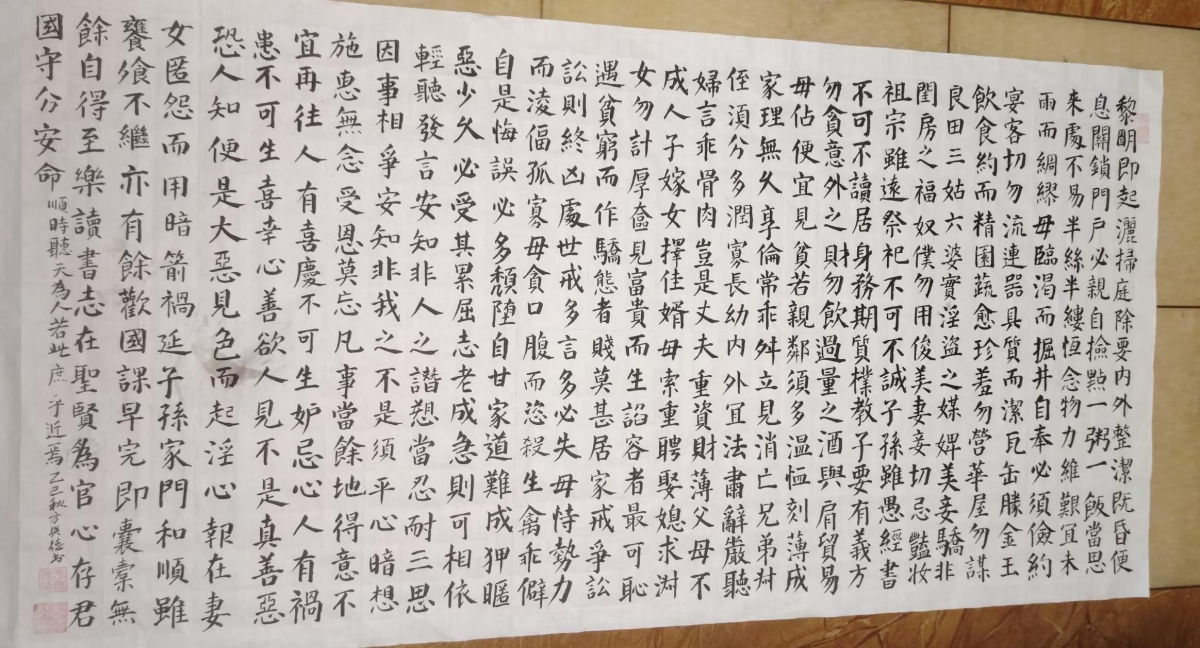 黎明即起灑掃庭除要內外整潔既昏便
息關鎖門戶必親自撿點一粥一飯當思
來處不易半絲半縷恒念物力維艱宜未
雨而綢繆毋臨渴而掘井自奉必須儉約
宴客切勿流連器具質而潔瓦缶勝金玉
飲食約而精園蔬愈珍羞勿營華屋勿謀
良田三姑六婆實淫盜之媒婢美妾驕非
閨房之福奴僕勿用俊美妻妾切忌豔妝
祖宗雖遠祭祀不可不誠子孫雖愚經書
不可不讀居身務期質樸教子要有義方
勿貪意外之財勿飲過量之酒與肩貿易
毋佔便宜見貧若親鄰須多溫恤刻薄成
家理無久享倫常乖舛立見消亡兄弟叔
侄須分多潤寡長幼內外宜法肅辭嚴聽
婦言乖骨肉豈是丈夫重資財薄父母不
成人子嫁女擇佳婿毋索重聘娶媳求淑
女勿計厚奩見富貴而生諂容者最可恥
遇貧窮而作驕態者賤莫甚居家戒爭訟
訟則終凶處世戒多言多必失毋恃勢力
而淩逼孤寡毋貪口腹而恣殺生禽乖僻
自是悔誤必多頹墮自甘家道難成狎暱
惡少久必受其累屈志老成急則可相依
輕聽發言安知非人之譖愬當忍耐三思
因事相爭安知非我之不是須平心暗想
施惠無念受恩莫忘凡事當餘地得意不
宜再往人有喜慶不可生妒忌心人有禍
患不可生喜幸心善欲人見不是真善惡
恐人知便是大惡見色而起淫心報在妻
女匿怨而用暗箭禍延子孫家門和順雖
饔飧不繼亦有餘歡國課早完即囊橐無
餘自得至樂讀書志在聖賢為官心存君
國守分安命順時聽天為人若此庶乎近焉乙巳秋方